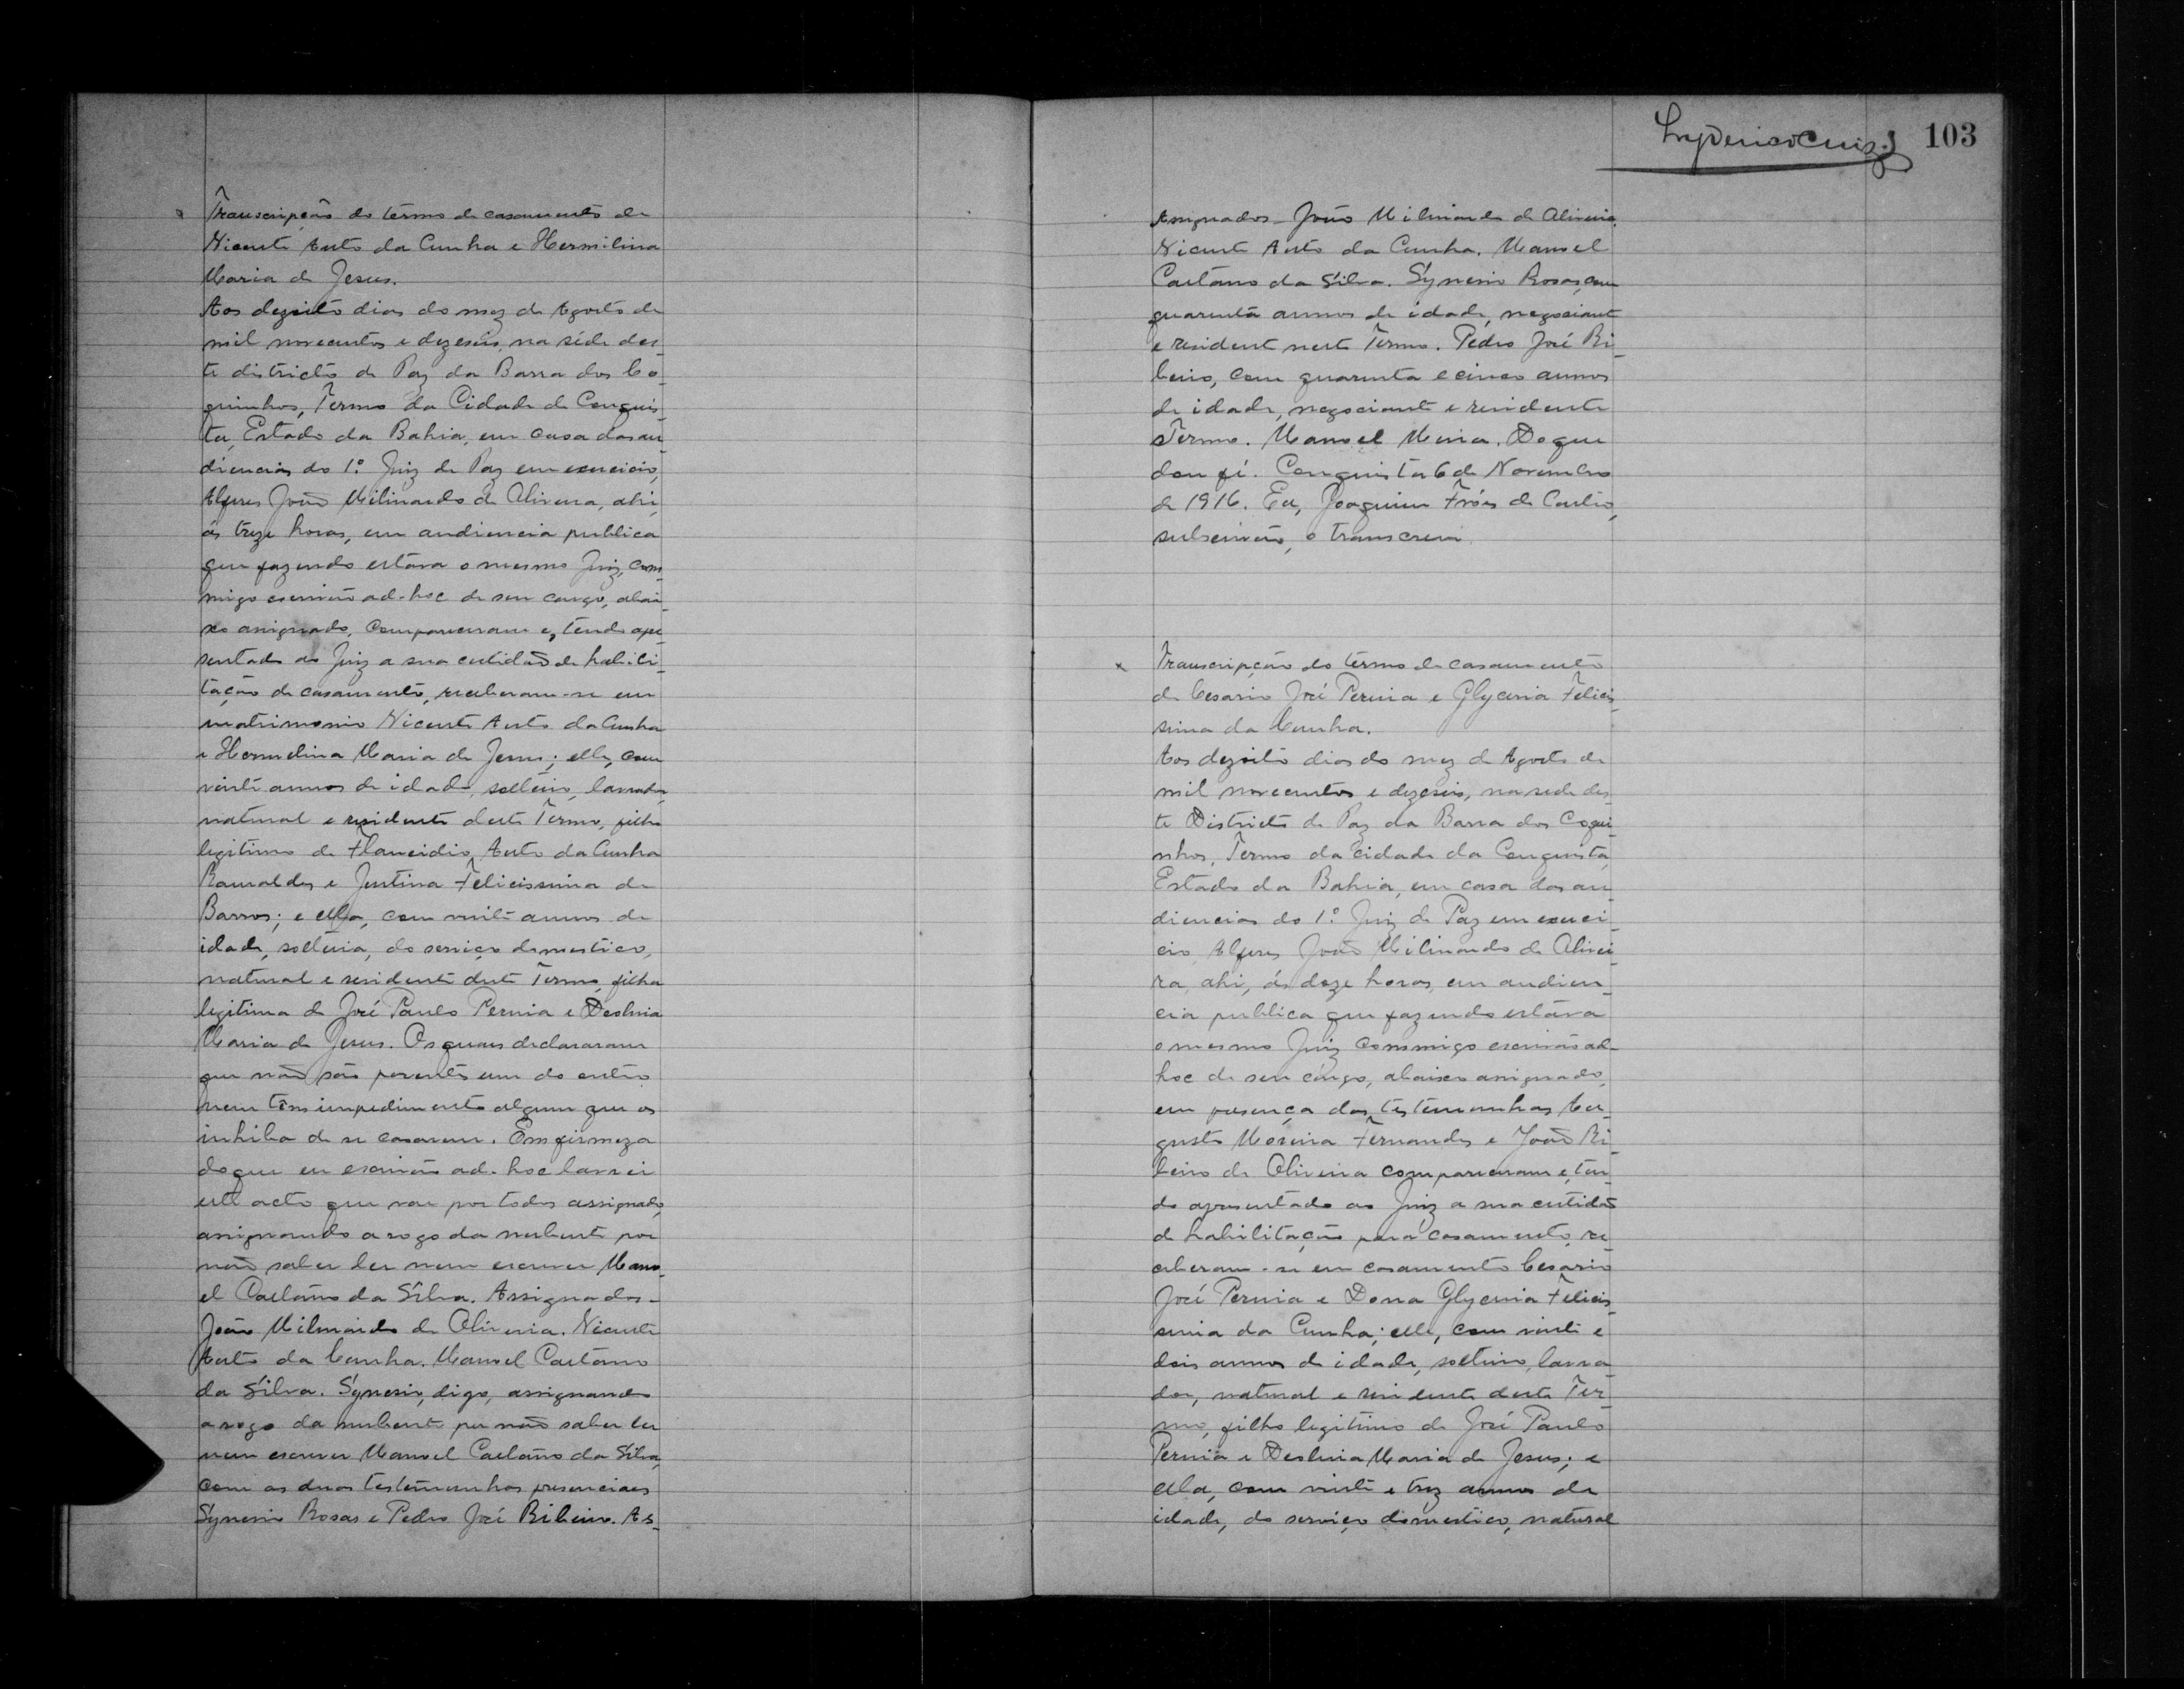 Transcripção do têrmo de casamento de
Vicente Auto da Cunha e Hermilina
Maria de Jesus.
Aos dezoito dias do mez de Agosto de
mil novecentos e dezeseis, na séde des-
te districto de Paz da Barra dos Co-
quinhos, Termo da Cidade de Conquis-
ta, Estado da Bahia, em casa das au-
diencias do 1º Juiz de Paz em exercicio,
Alferes João Milinardo de Oliveira, ahi,
ás treze horas, em audiencia publica
que fazendo estava o mesmo Juiz, com-
migo escrivão ad-hoc de seu cargo, abai-
xo assignado, compareceram e, tendo apre-
sentado ao Juiz a sua certidão de habili-
tação de casamento, receberam-se em
matrimonio Vicente Auto da Cunha
e Hermelina Maria de Jesus; elle, com
vinte annos de idade, solteiro, lavrador,
natural e residente deste Termo, filho
legitimo de Flaucidio Auto da Cunha
Ramaldes e Justina Felicissima de
Barros; e ella, com vinte annos de
idade, solteira, do serviço domestico,
natural e residente deste Termo, filha
legitima de José Paulo Pereira e Deolina
Maria de Jesus. Os quaes declararam
que não são parentes um do outro
nem têm impedimento algum que os
inhiba de se casarem. Em firmeza
do que eu escrivão ad-hoc lavrei
este acto que vae por todos assignado,
assignando a rogo da nubente por
não saber ler nem escrever Mano-
el Caetano da Silva. Assignados-
João Milinardo de Oliveira. Vicente
Auto da Cunha. Manoel Caetano
da Silva. Synesio, digo, assignando
a rogo da nubente por não saber ler
nem escrever Manoel Caetano da Silva,
com as duas testemunhas presenciaes
Synesio Rosas e Pedro José Ribeiro. As-
103
Assignados- João Milinardo de Oliveira.
Vicente Auto da Cunha. Manoel
Caetano da Silva. Synesio Rosas, com
quarenta annos de idade, negociante
e residente neste Termo. Pedro José Ri-
beiro, com quarenta e cinco annos
de idade, negociante e residente
Termo. Manoel Meira. Do que
dou fé. Conquista 6 de Novembro
de 1916. Eu, Joaquim Fróes de Castro,
subscrivão, o transcrevi.
Transcripção do têrmo de casamento
de Cesario José Pereira e Glyceria Felicis-
sima da Cunha.
Aos dezoito dias do mez de Agosto de
mil novecentos e dezeseis, na sede des-
te Districto de Paz da Barra dos Coqui-
nhos, Termo da cidade da Conquista,
Estado da Bahia, em casa das au-
diencias do 1º Juiz de Paz em exerci-
cio, Alferes João Milinardo de Olivei-
ra, ahi, ás doze horas, em audien-
cia publica que fazendo estava
o mesmo Juiz commigo escrivão ad-
hoc de seu cargo, abaixo assignado,
em presença das testemunhas Au-
gusto Moreira Fernandes e João Ri-
beiro de Oliveira compareceram e, ten-
do apresentado ao Juiz a sua certidão
de habilitação para casamento, re-
ceberam-se em casamento Cesario
José Pereira e Dona Glyceria Felicis-
sima da Cunha; elle, com vinte e
dois annos de idade, solteiro, lavra-
dor, natural e residente deste Ter-
mo, filho legitimo de José Paulo
Pereira e Deolina Maria de Jesus; e
ella, com vinte e trez annos de
idade, do serviço domestico, natural